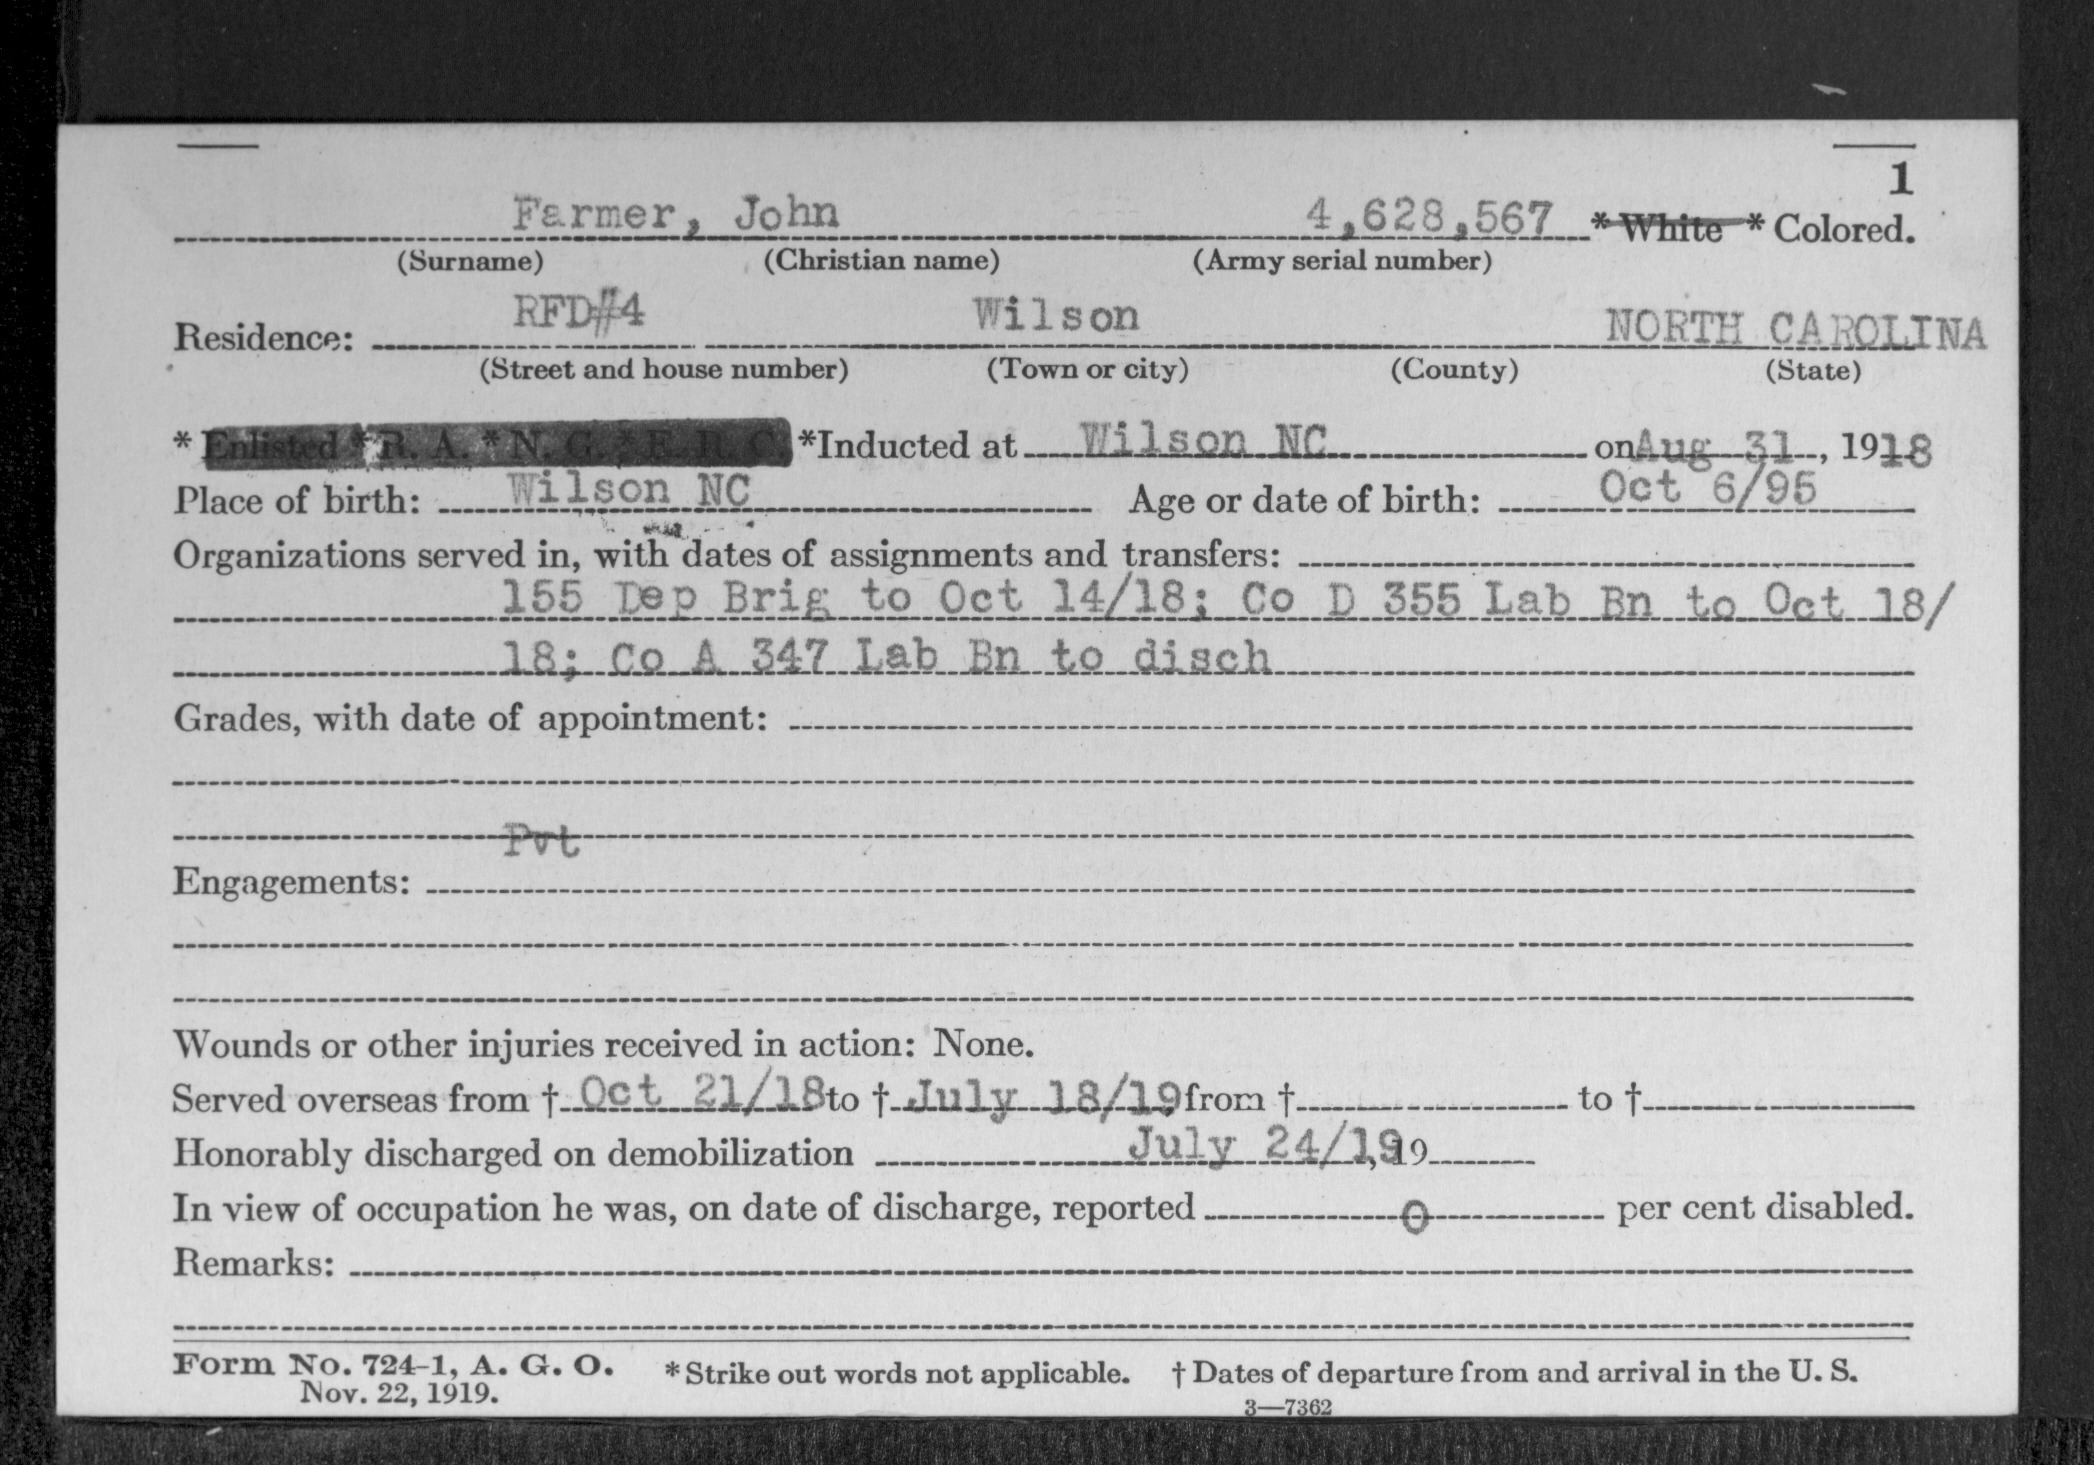 1
Farmer, John 4,628,567 * White * Colored.
(Surname) (Christian name) (Army serial number)
Residence: RFD#4 Wilson NORTH CAROLINA
(Street and house number) (Town or city) (County) (State)
* Enlisted * R. A. * N. G. * E. R. C. *Inducted at Wilson NC on Aug 31, 1918
Place of birth: Wilson NC Age or date of birth: Oct 6/95
Organizations served in, with dates of assignments and transfers:
155 Dep Brig to Oct 14/18; Co D 355 Lab Bn to Oct 18/
18; Co A 347 Lab Bn to disch
Grades, with date of appointment:
Pvt
Engagements:
Wounds or other injuries received in action: None.
Served overseas from † Oct 21/18 to † July 18/19 from † to †
Honorably discharged on demobilization July 24/19, 19
In view of occupation he was, on date of discharge, reported 0 per cent disabled.
Remarks:
Form No. 724-1, A. G. O. * Strike out words not applicable. † Dates of departure from and arrival in the U. S.
Nov. 22, 1919.
3—7362